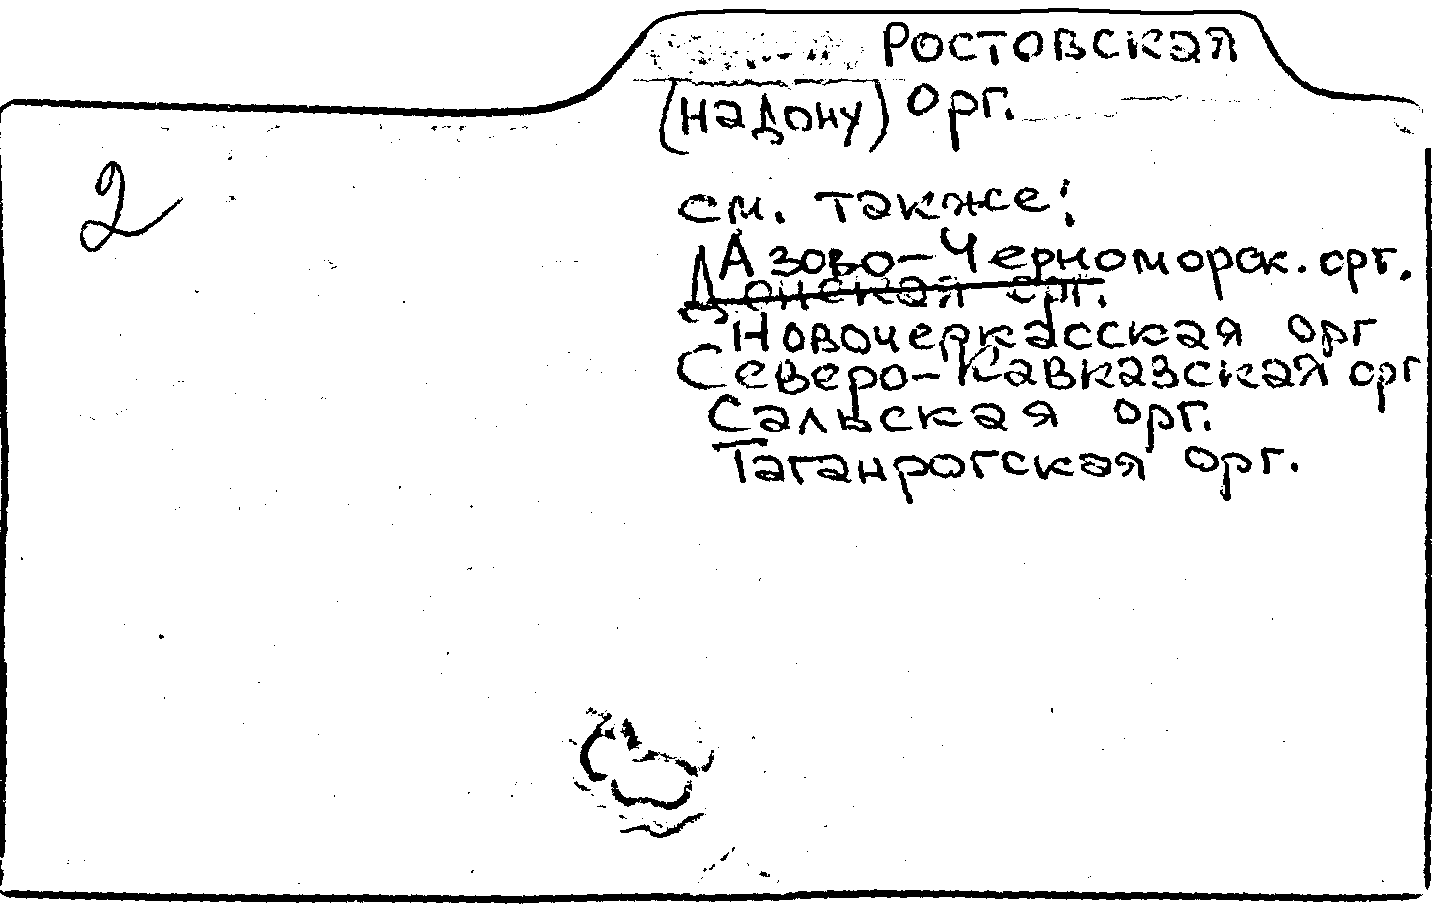 РОСТОВСКАЯ
(НаДОНУ) Орг.
2
см. также:
Азово-Черноморск. орг.
Донская орг.
Новочеркасская орг
Северо-Кавказская орг
Сальская орг.
Таганрогская орг.